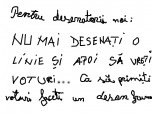 Pentru desenatorii noi:
NU MAI DESENAȚI O
LINIE ȘI APOI SĂ VREȚI
VOTURI... Ca să primiți
voturi faceți un desen frumos